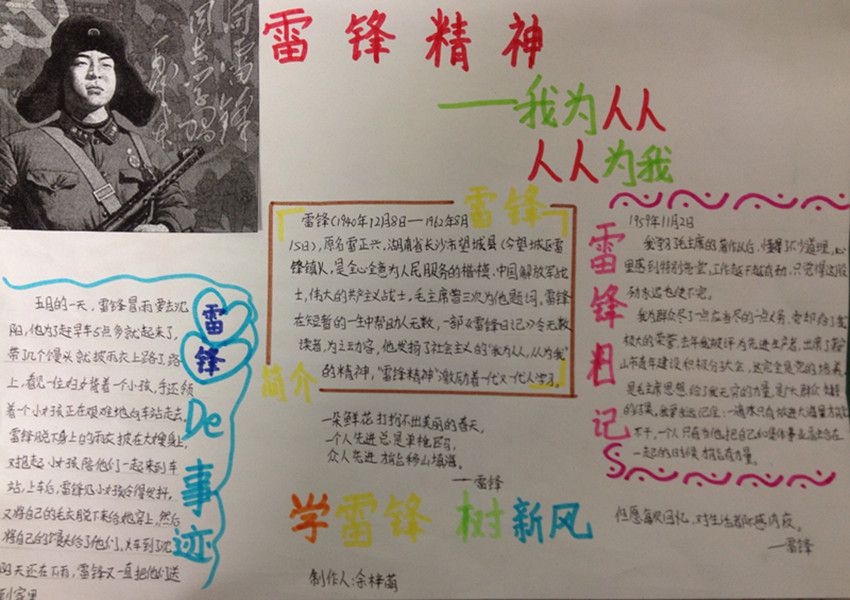 向雷锋
同志学习
毛泽东
雷锋精神
——我为人人
人人为我
雷锋
雷锋(1940年12月18日—1962年8月
15日),原名雷正兴,湖南省长沙市望城县(今望城区雷
锋镇)人,是全心全意为人民服务的楷模,中国解放军战
士,伟大的共产主义战士,毛主席曾三次为他题词。雷锋
在短暂的一生中帮助人无数,一部《雷锋日记》令无数
读者为之动容,他发扬了社会主义的“我为人人,人人为我”
的精神,“雷锋精神”激励着一代又一代人学习。
简介
一朵鲜花打扮不出美丽的春天,
一个人先进总是单枪匹马,
众人先进才能移山填海。
——雷锋
雷锋De事迹
五月的一天,雷锋冒雨要去沈
阳,他为了赶早车5点多就起来了,
带了几个馒头就披雨衣上路了,路
上,看见一位妇女背着一个小孩,手还领
着一个小女孩正在艰难地向车站走去,
雷锋脱下身上的雨衣披在大嫂身上,
又抱起小女孩陪他们一起来到车
站,上车后,雷锋见小女孩冷得发抖,
又将自己的毛衣脱下来给她穿上,然后
将自己的馒头给了他们,火车到了沈
阳天还在下雨,雷锋又一直把他们送
到家里
雷锋日记
1959年11月2日
我学习毛主席的著作以后,懂得了不少道理,心
里感到特别亮堂,工作越干越有劲,只觉得这股
劲永远也使不完。
我为群众尽了一点应当尽的一点义务,党却给了我
极大的荣誉,去年我被评为先进生产者,出席了鞍
山市青年建设积极分子大会,这完全是党的培养,
是毛主席思想给了我无穷的力量,是广大群众支持
的结果,我要永远记住:一滴水只有放进大海里才能
不干,一个人只有当他把自己和集体事业融合在
一起的时候才能有力量。
但愿每次回忆,对生活都不感内疚。
——雷锋
学雷锋 树新风
制作人:余梓菡